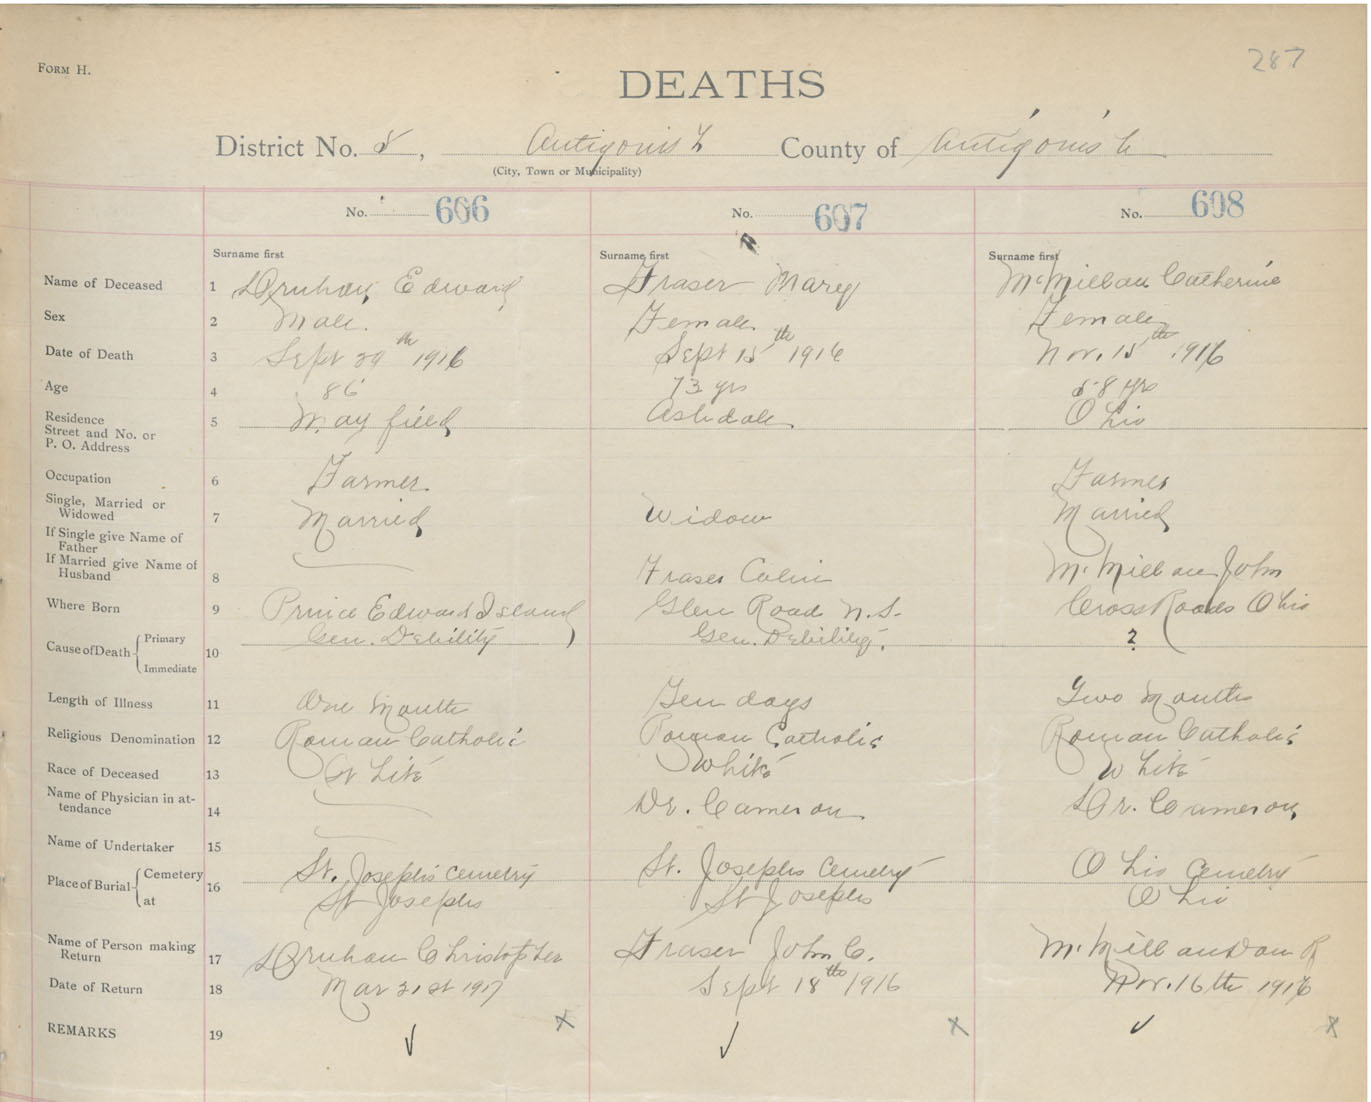 287
FORM H.
DEATHS
District No. 5, Antigonish County of Antigonish
(City, Town or Municipality)
No. 606 No. 607 No. 608
Surname first Surname first Surname first
Name of Deceased 1 Druhan, Edward Fraser Mary McMillan Catherine
Sex 2 Male. Female Female
Date of Death 3 Sept 29th 1916 Sept 15th 1916 Nov. 15th 1916
Age 4 86 73 yrs 58 yrs
Residence
Street and No. or
P. O. Address 5 Mayfield Ashdale Ohio
Occupation 6 Farmer Farmer
Single, Married or
Widowed 7 Married Widow Married
If Single give Name of
Father
If Married give Name of
Husband 8 Fraser Colin McMillan John
Where Born 9 Prince Edward Island Glen Road N.S. Cross Roads Ohio
Cause of Death Primary Immediate 10 Gen. Debility Gen. Debility. ?
Length of Illness 11 One Month Ten days Two Months
Religious Denomination 12 Roman Catholic Roman Catholic Roman Catholic
Race of Deceased 13 White White White
Name of Physician in at-
tendance 14 Dr. Cameron Dr. Cameron
Name of Undertaker 15
Place of Burial Cemetery 16 St. Joseph's Cemetry St. Josephs Cemetry Ohio Cemetry
at St Josephs St Josephs Ohio
Name of Person making
Return 17 Druhan Christopher Fraser John C. McMillan Dan R
Date of Return 18 Mar 21st 1917 Sept 18th 1916 Nov. 16th 1916
REMARKS 19 x x x